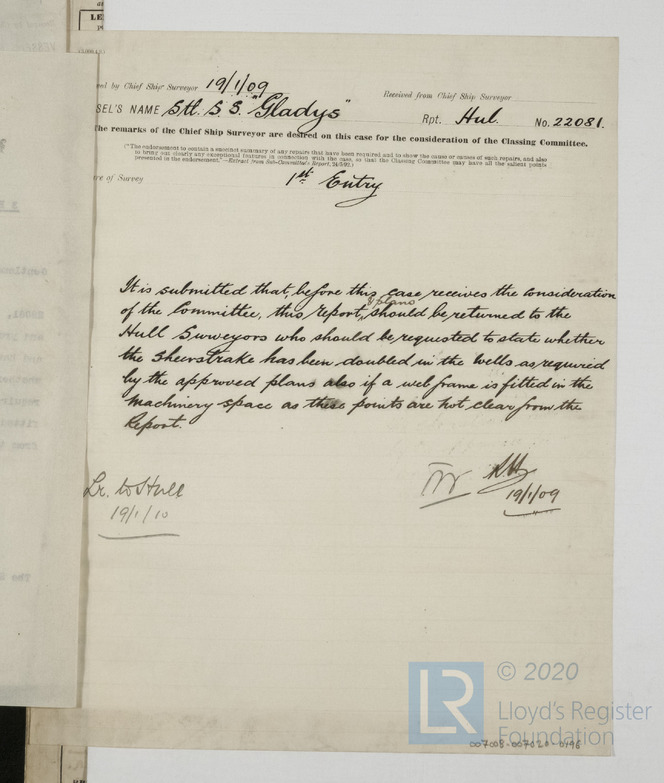 ed by Chief Ship Surveyor 19/1/09
Received from Chief Ship Surveyor
SEL'S NAME Stl. S.S. "Gladys"
Rpt. Hul. No. 22081.
the remarks of the Chief Ship Surveyor are desired on this case for the consideration of the Classing Committee.
(*The endorsement to contain a succinct summary of any repairs that have been required and to show the cause or causes of such repairs, and also
to bring out clearly any exceptional features in connection with the case, so that the Classing Committee may have all the salient points
presented in the endorsement."—Extract from Sub-Committee's Report,
re of Survey 1st Entry
It is submitted that, before this case receives the consideration
& plans
of the Committee, this report, should be returned to the
Hull Surveyors who should be requested to state whether
the Sheerstrake has been doubled in the wells as required
by the approved plans also if a web frame is fitted in the
machinery space as these points are not clear from the
Report.
Lr. to Hull
19/1/10
19/1/09
LR © 2020
Lloyd's Register
Foundation
007008-007021-0196